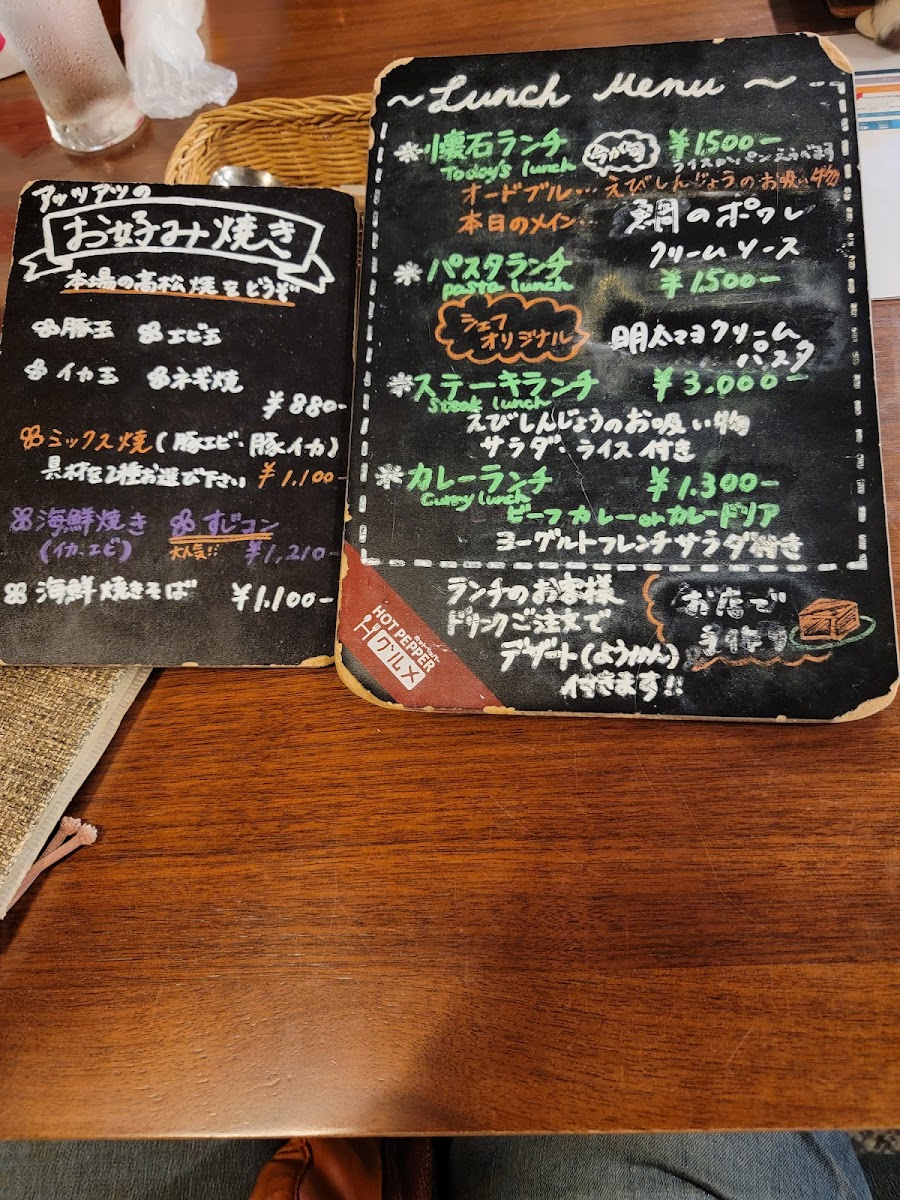 アッツアツの
お好み焼き
本場の高松焼をどうぞ
豚玉 エビ玉
イカ玉 ネギ焼
¥880-
ミックス焼(豚エビ・豚イカ)
具材を2種お選び下さい ¥1.100-
海鮮焼き すじコン
(イカ、エビ) 大人気!! ¥1,210-
海鮮焼きそば ¥1.100-
~Lunch Menu~
懐石ランチ 今が旬 ¥1500-
Today's lunch ライスかパンえらべます
オードブル… えびしんじょうのお吸い物
本日のメイン… 鯛のポワレ
クリームソース
パスタランチ ¥1500-
pasta lunch
シェフ
オリジナル 明太マヨクリーム
パスタ
ステーキランチ ¥3.000-
Steak lunch
えびしんじょうのお吸い物
サラダ・ライス付き
カレーランチ ¥1.300-
Curry lunch
ビーフカレーorカレードリア
ヨーグルトフレンチサラダ付き
ランチのお客様
ドリンクご注文で
デザート(ようかん)
付きます!!
お店で
手作り
HOT PEPPER
ホットペッパー
グルメ